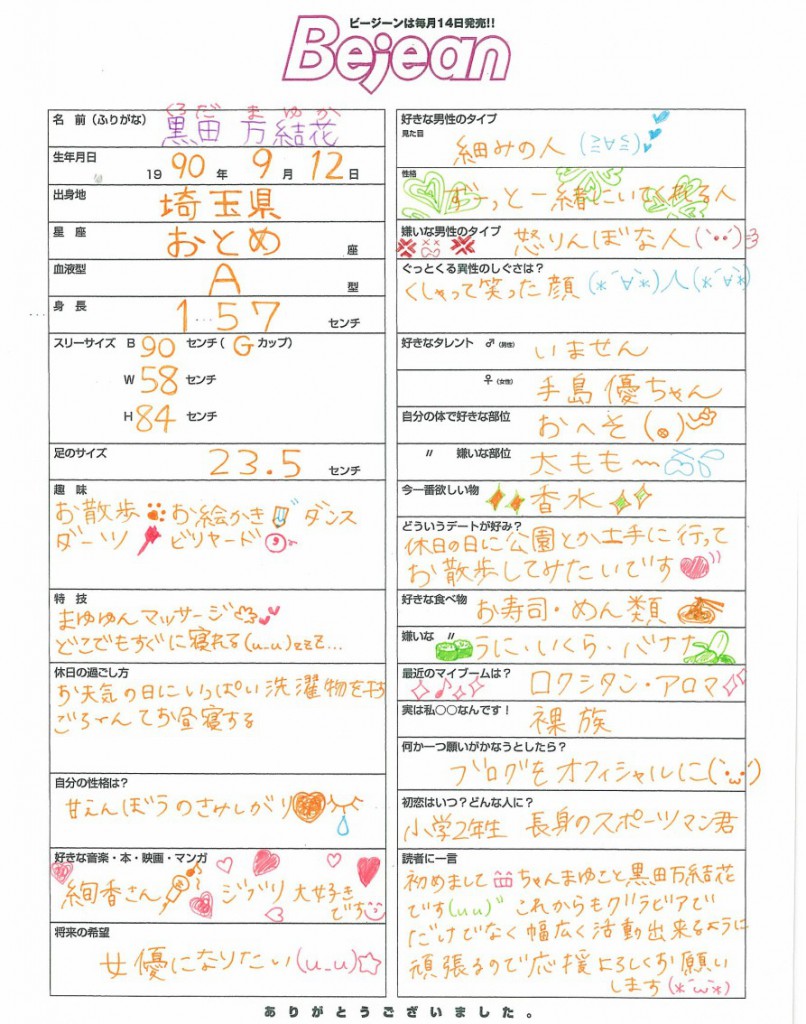 ビージーンは毎月14日発売!!
Bejean
名 前（ふりがな） くろだ まゆか
黒田 万結花
生年月日
1990年 9月 12日
出身地
埼玉県
星 座
おとめ 座
血液型
A 型
身 長
157 センチ
スリーサイズ B 90 センチ( G カップ)
W 58 センチ
H 84 センチ
足のサイズ
23.5 センチ
趣 味
お散歩 お絵かき ダンス
ダーツ ビリヤード
特 技
まゆゆんマッサージ
どこでもすぐに寝れる(u_u)zzz...
休日の過ごし方
お天気の日にいっぱい洗濯物を干す
ごろーんてお昼寝する
自分の性格は？
甘えんぼうのさみしがり
好きな音楽・本・映画・マンガ
絢香さん ジブリ 大好き
です
将来の希望
女優になりたい(u_u)
好きな男性のタイプ
見た目
細みの人 (≧∀≦)
性格
ずーっと一緒にいてくれる人
嫌いな男性のタイプ
怒りんぼな人
ぐっとくる異性のしぐさは？
くしゃって笑った顔 (*´∀`*)人(*´∀`*)
好きなタレント ♂（男性）
いません
♀（女性）
手島優ちゃん
自分の体で好きな部位
おへそ
〃 嫌いな部位
太もも〜
今一番欲しい物
香水
どういうデートが好み？
休日の日に公園とか土手に行って
お散歩してみたいです
好きな食べ物
お寿司・めん類
嫌いな 〃
うに・いくら・バナナ
最近のマイブームは？
ロクシタン・アロマ
実は私〇〇なんです！
裸族
何か一つ願いがかなうとしたら？
ブログをオフィシャルに(`･ω･´)
初恋はいつ？どんな人に？
小学2年生 長身のスポーツマン君
読者に一言
初めまして ちゃんまゆこと黒田万結花
です(uu)" これからもグラビアで
だけでなく幅広く活動出来るように
頑張るので応援よろしくお願い
します(*´ω`*)
ありがとうございました。